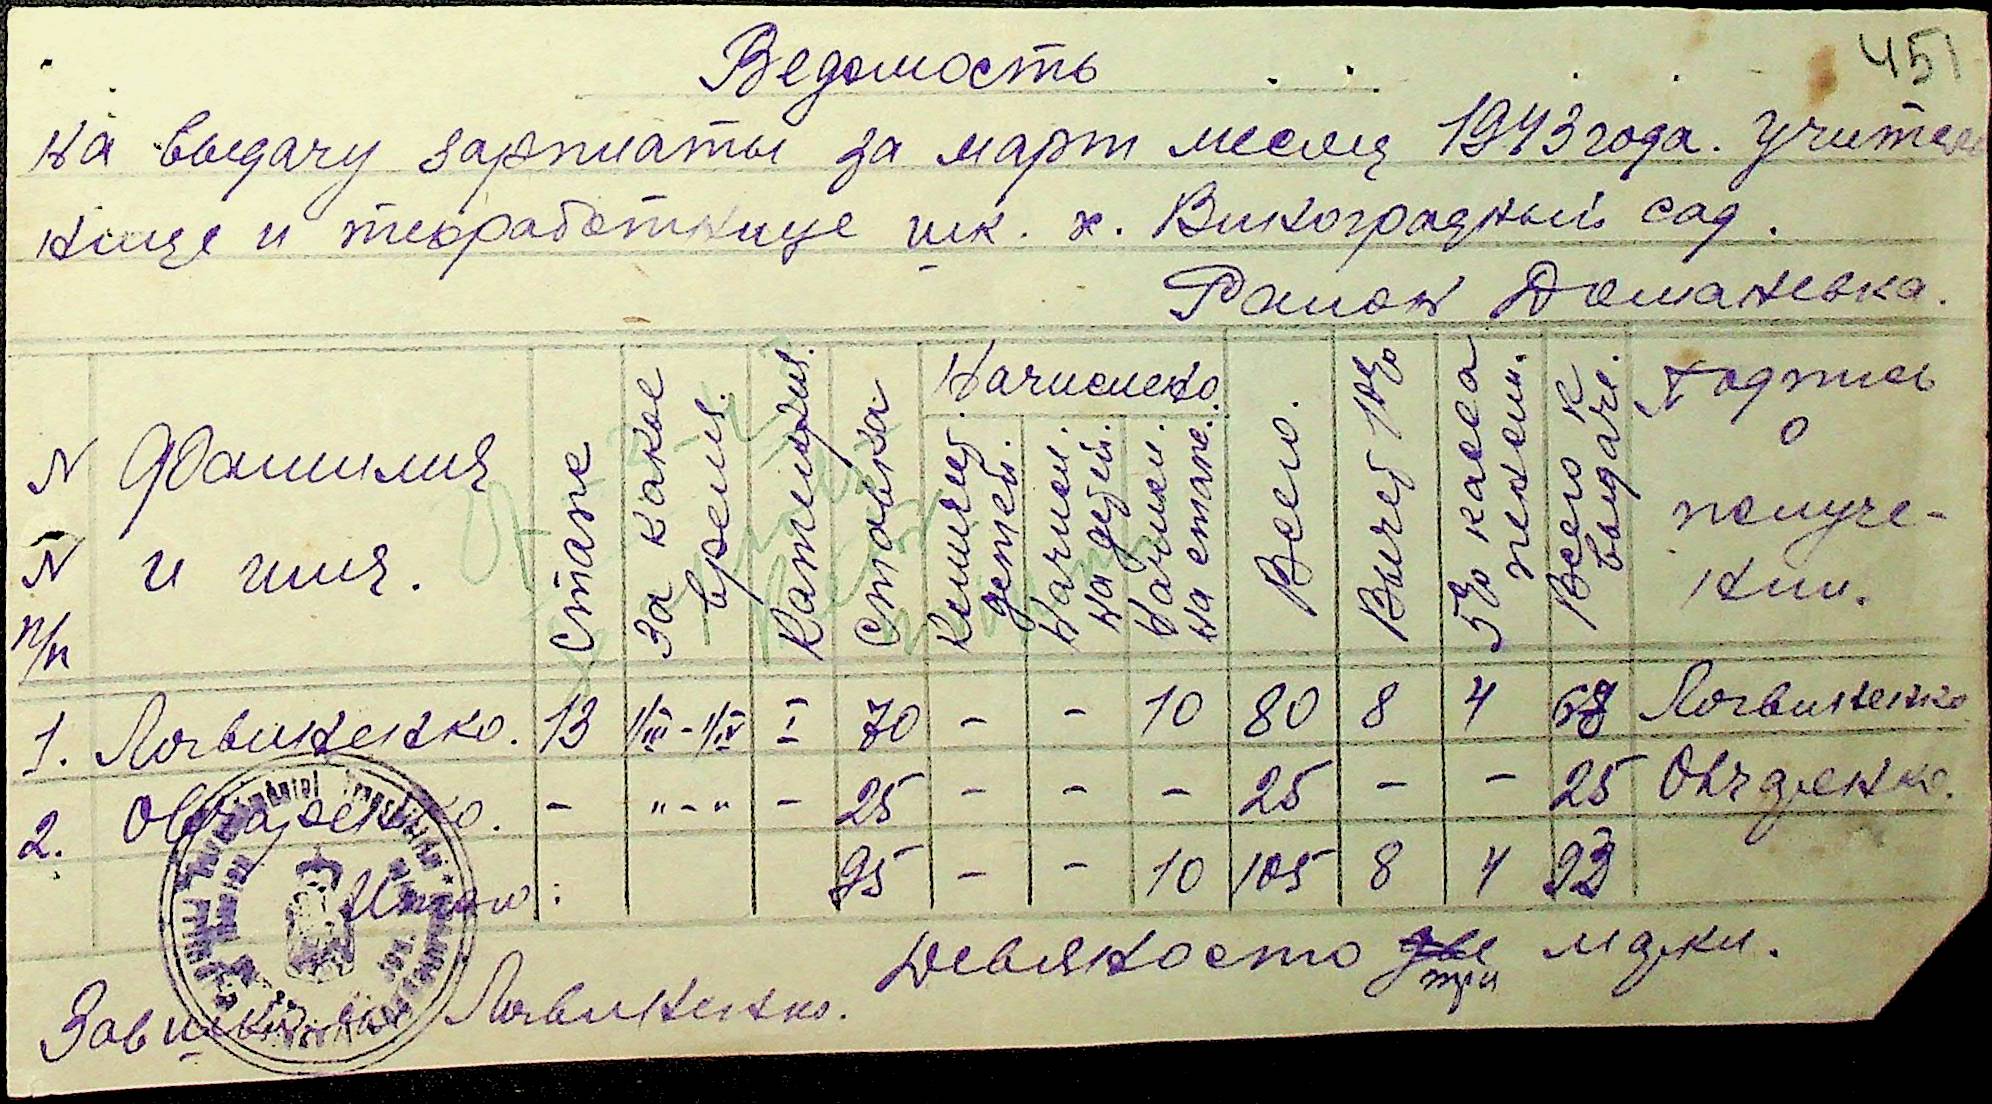 451
Ведомость
на выдачу зарплаты за март месяц 1943 года. учитель
нице и техработнице шк. х. Виноградный сад.
Раион Доманевка.
N N п/п
Фамилия и имя.
Стаж
За какое время.
Категория.
Ставка
Начислено.
Количест. детей.
Начисл. на детей.
Начисл. на стаж.
Всего.
Вычет 10%
5% касса пенсии.
Всего к выдаче.
Подпись о получе-
нии.
1. Логвиненко. 13 1/III-1/IV I 70 - - 10 80 8 4 68 Логвиненко
2. Овчаренко. - "-" - 25 - - - 25 - - 25 Овчаренко.
Итого: 95 - - 10 105 8 4 93
Девяносто две три марки.
Зав школой Логвиненко.